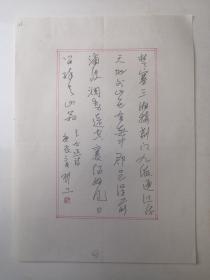 楚塞三湘接荆门九派通江流
天地外山色有無中郡邑浮前
浦波澜動遠空襄阳好风日
留醉与山翁 王右丞诗